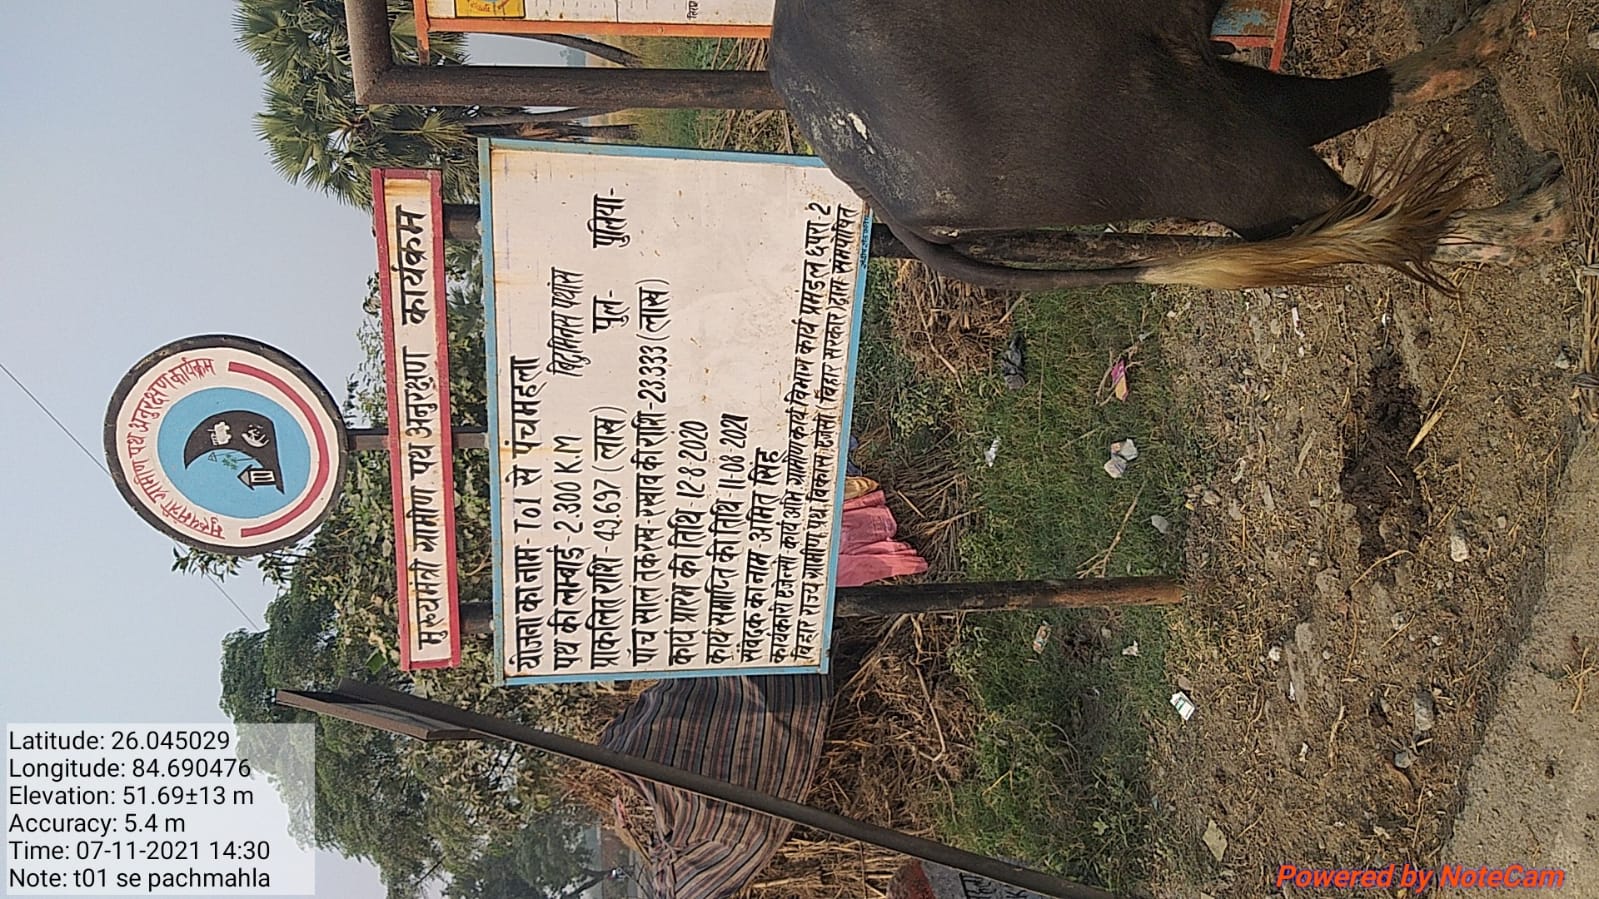 मुख्यमंत्री ग्रामीण पथ अनुरक्षण कार्यक्रम
मुख्यमंत्री ग्रामीण पथ अनुरक्षण कार्यक्रम
योजना का नाम - T01 से पंचमहला
पथ की लम्बाई - 2.300 K.M बिटुमिनस पथांस
प्राकलित राशि - 49.697 (लाख) पुल - पुलिया -
पांच साल तक रख-रखाव की राशि - 23.333 (लाख)
कार्य प्रारंभ की तिथि - 12-8-2020
कार्य समाप्ति की तिथि - 11-08-2021
संवेदक का नाम - अमित सिंह
कार्यकारी एजेन्सी - कार्य अभि. ग्रामीण कार्य विभाग कार्य प्रमंडल छपरा-2
बिहार राज्य ग्रामीण पथ विकास एजेंसी (बिहार सरकार) द्वारा समपोषित
Latitude: 26.045029
Longitude: 84.690476
Elevation: 51.69±13 m
Accuracy: 5.4 m
Time: 07-11-2021 14:30
Note: t01 se pachmahla
Powered by NoteCam